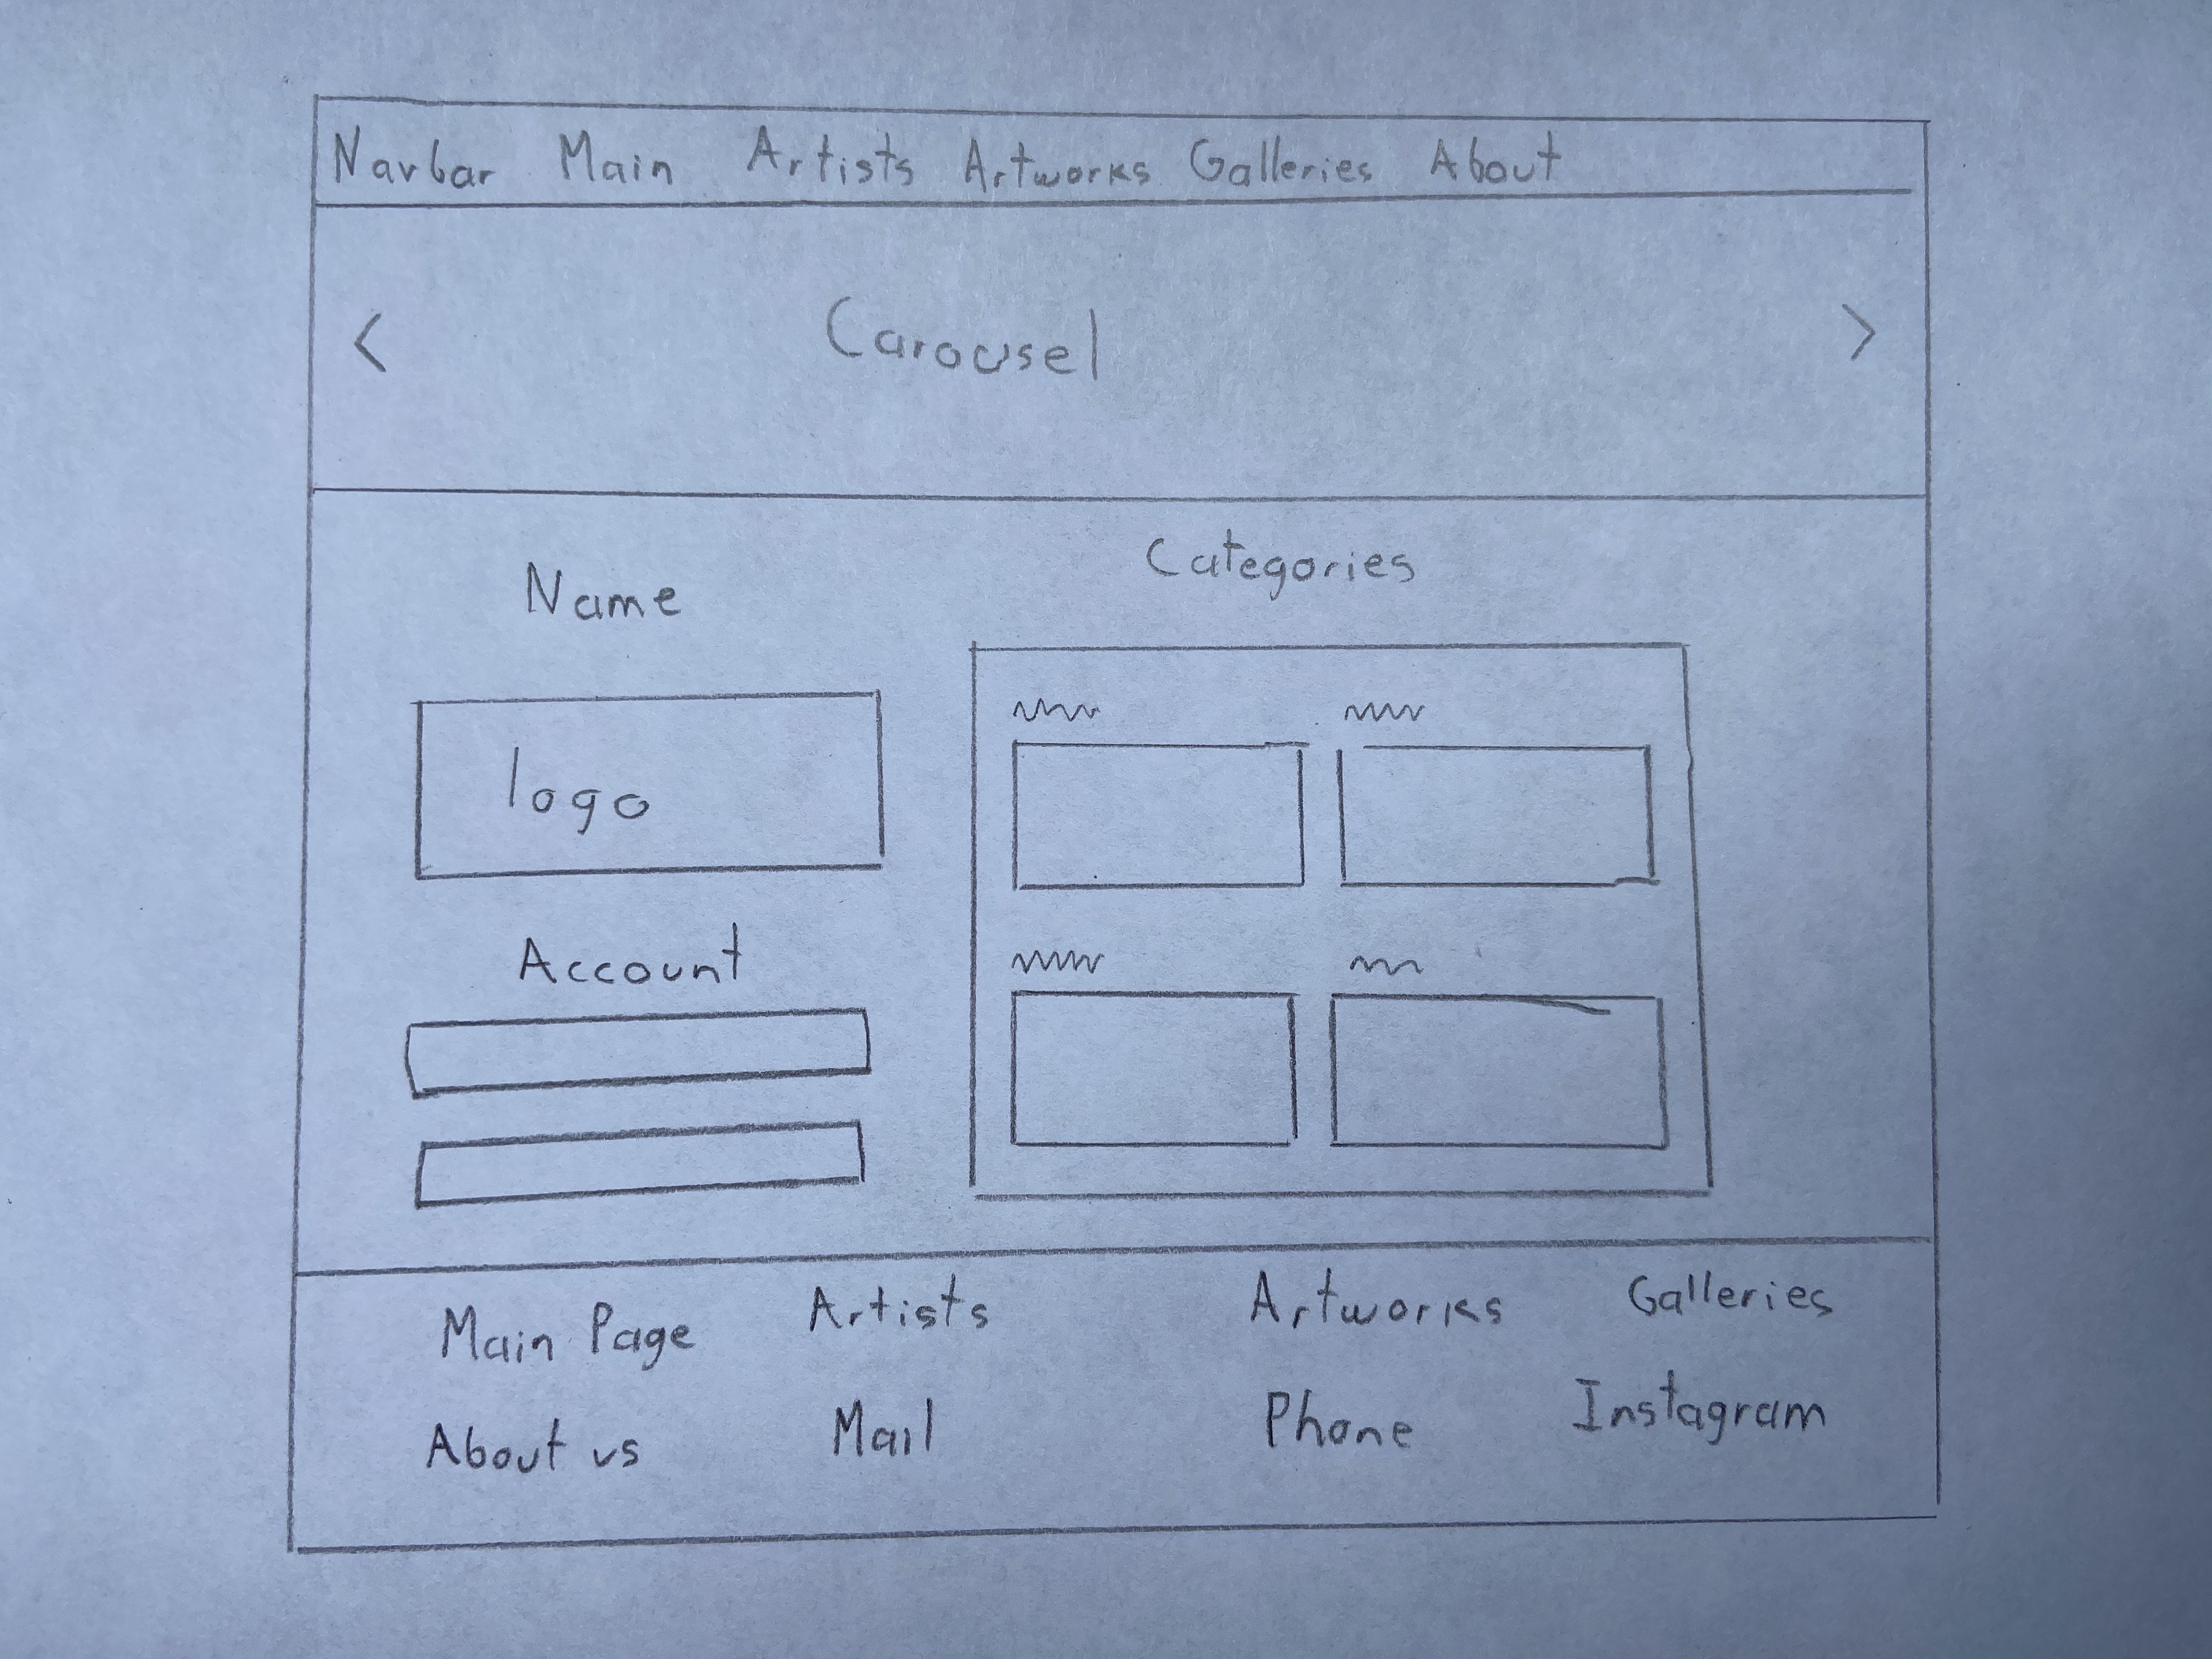 Navbar Main Artists Artworks Galleries About
< Carousel >
Name
logo
Account
Categories
Main Page Artists Artworks Galleries
About us Mail Phone Instagram